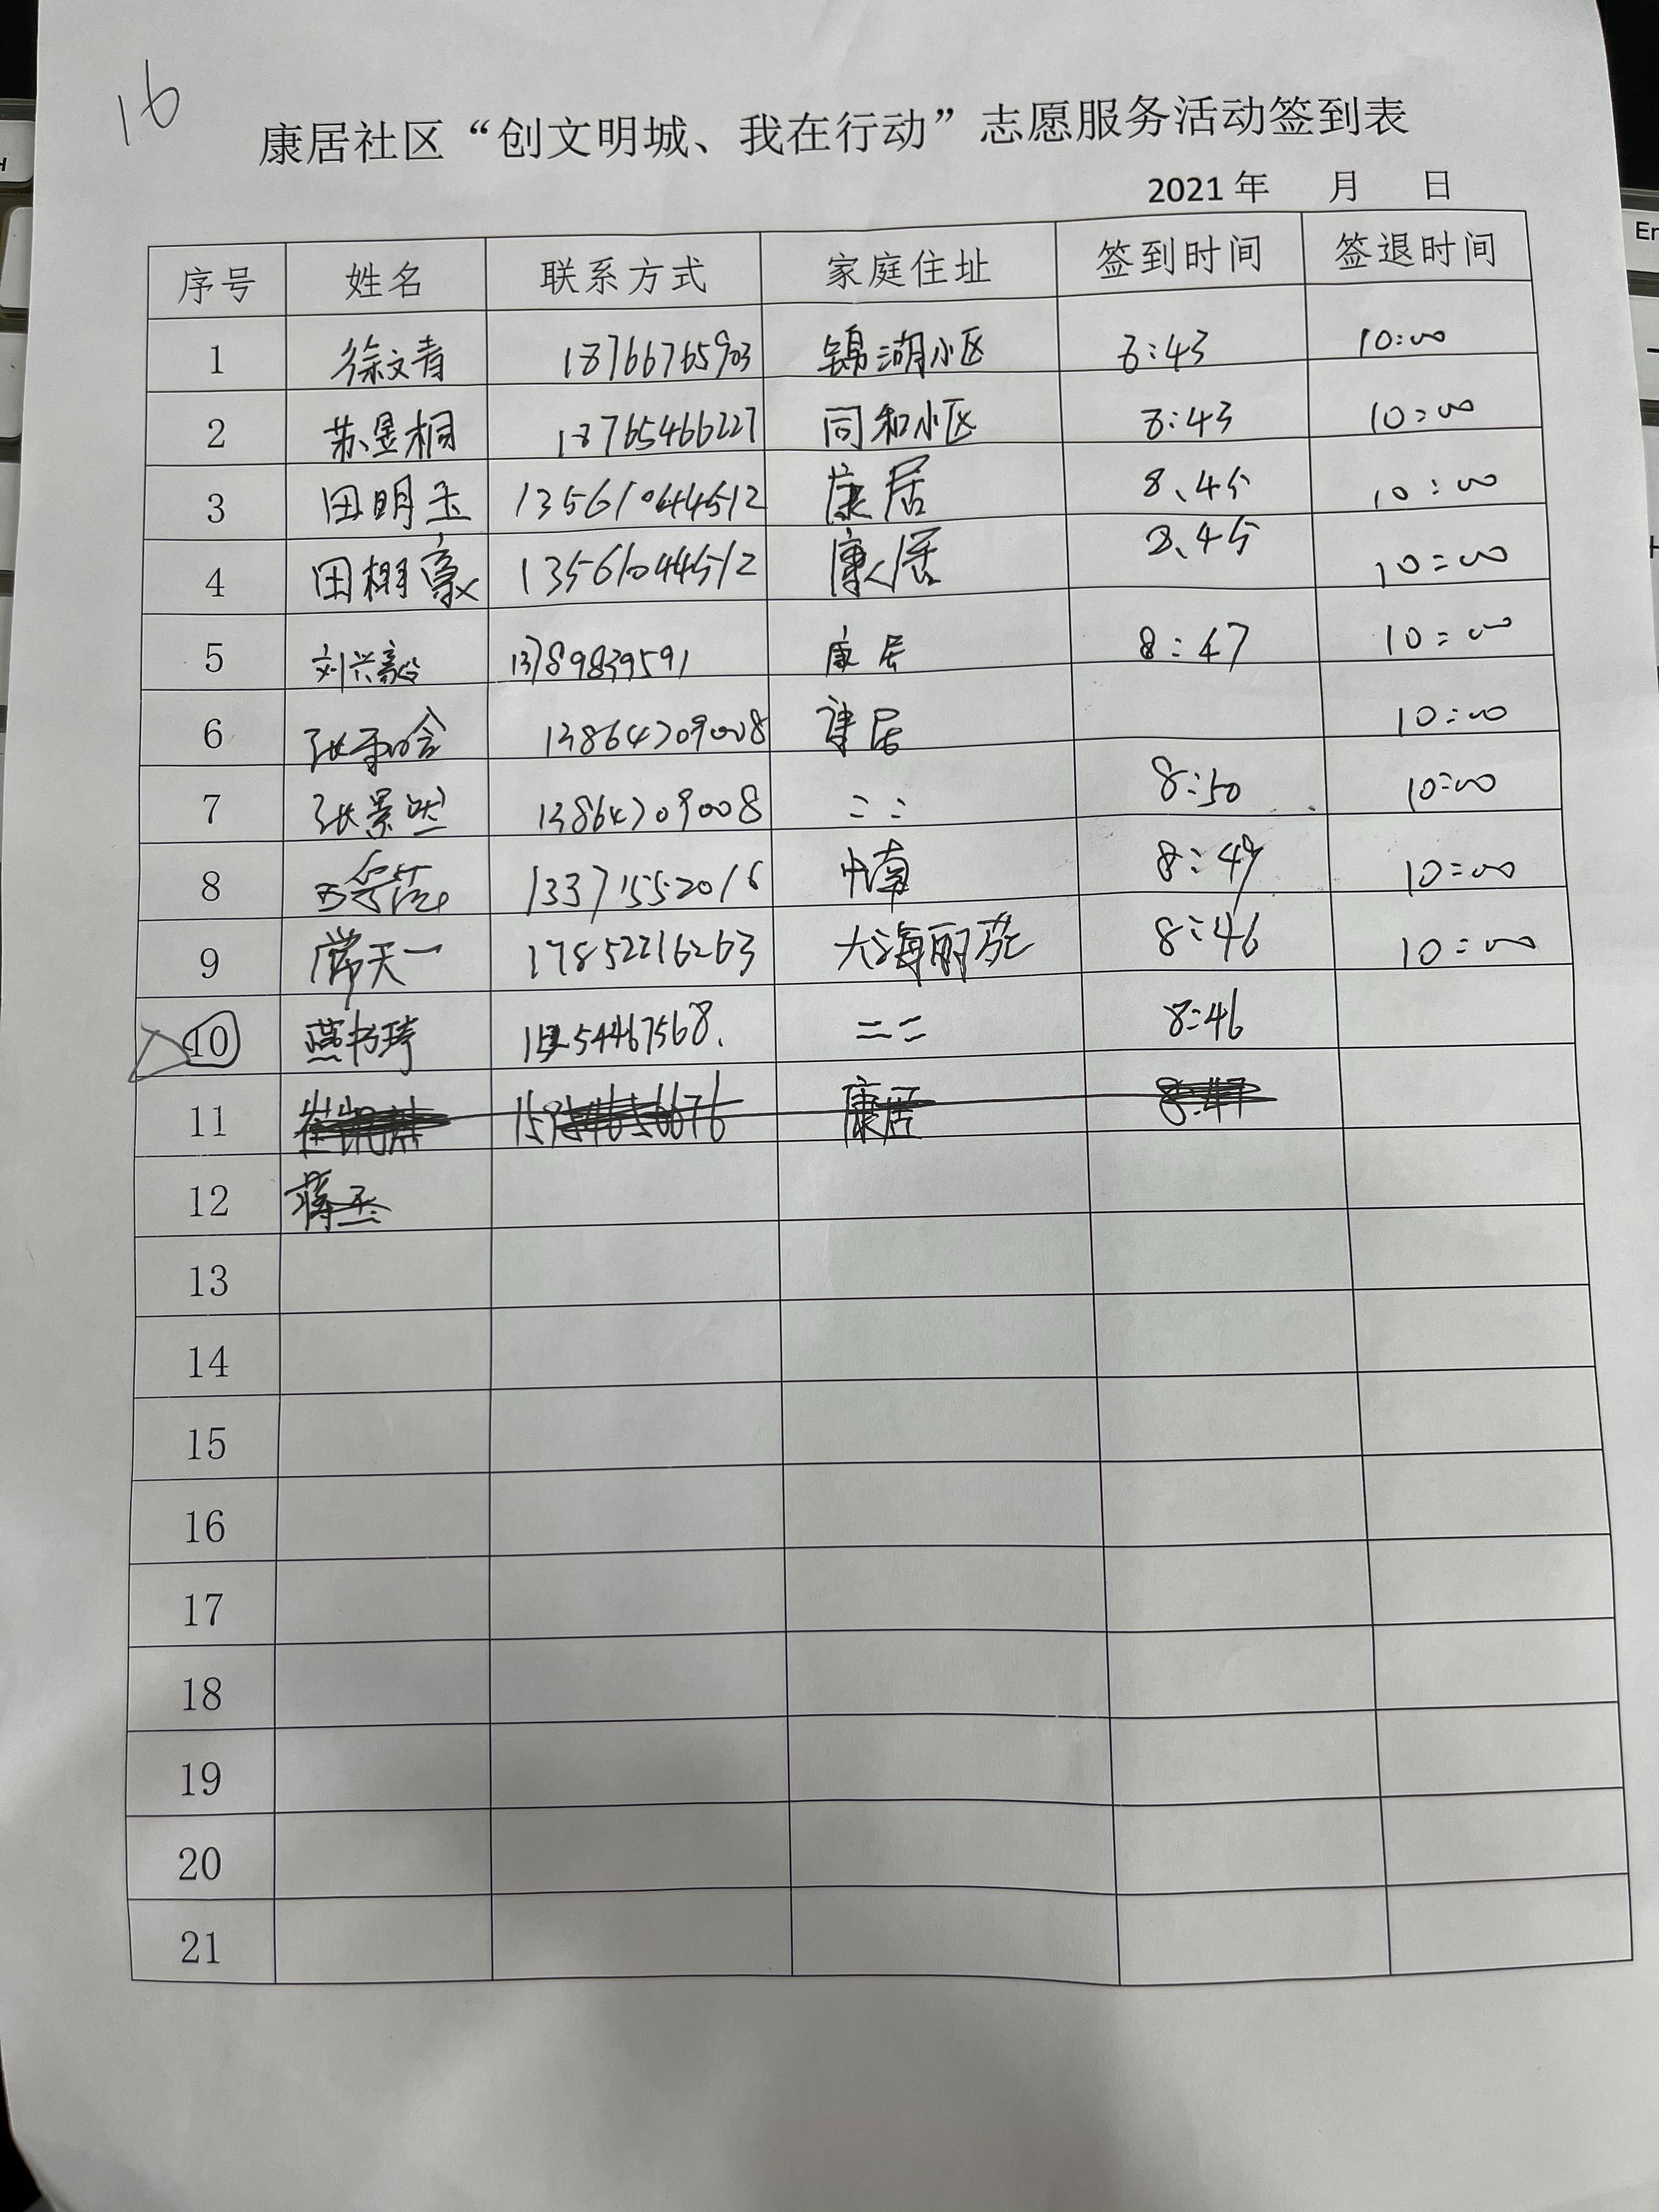 16
康居社区“创文明城、我在行动”志愿服务活动签到表
2021 年 月 日
序号 姓名 联系方式 家庭住址 签到时间 签退时间
1 徐文青 18766765903 锦湖小区 8:43 10:00
2 苏星桐 18765466227 同和小区 8:43 10:00
3 田明玉 13561044512 康居 8、45 10:00
4 田栩豪 13561044512 康居 8、45 10:00
5 刘兴毅 13789839591 康居 8:47 10:00
6 13864709008 康居 10:00
7 张景然 13864709008 :: 8:50 10:00
8 13371552016 中南 8:49 10:00
9 常天一 17852216263 大海丽苑 8:46 10:00
10 燕书琦 54467568. :: 8:46
11 康居 8:47
12 蒋
13
14
15
16
17
18
19
20
21